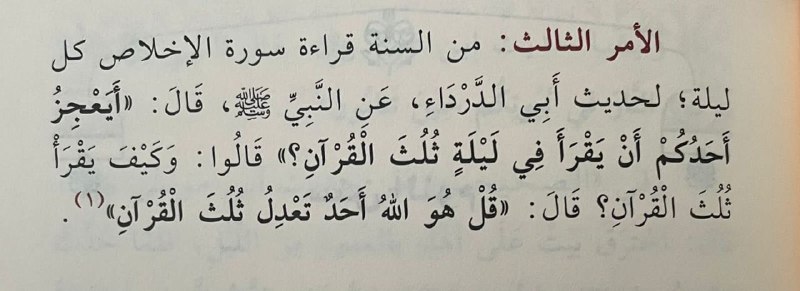 الأمر الثالث: من السنة قراءة سورة الإخلاص كل
ليلة؛ لحديث أَبِي الدَّرْدَاءِ، عَنِ النَّبِيِّ ﷺ، قَالَ: «أَيَعْجِزُ
أَحَدُكُمْ أَنْ يَقْرَأَ فِي لَيْلَةٍ ثُلُثَ الْقُرْآنِ؟» قَالُوا: وَكَيْفَ يَقْرَأْ
ثُلُثَ الْقُرْآنِ؟ قَالَ: «قُلْ هُوَ اللهُ أَحَدٌ تَعْدِلُ ثُلُثَ الْقُرْآنِ»(١).